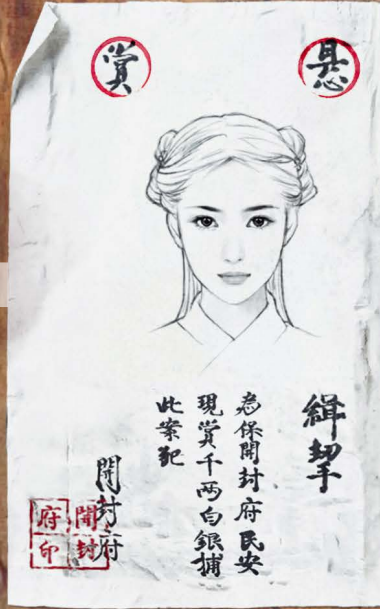 悬賞
緝拏
為保開封府民安
現賞千两白銀捕
此案犯
開封府
開封
府印